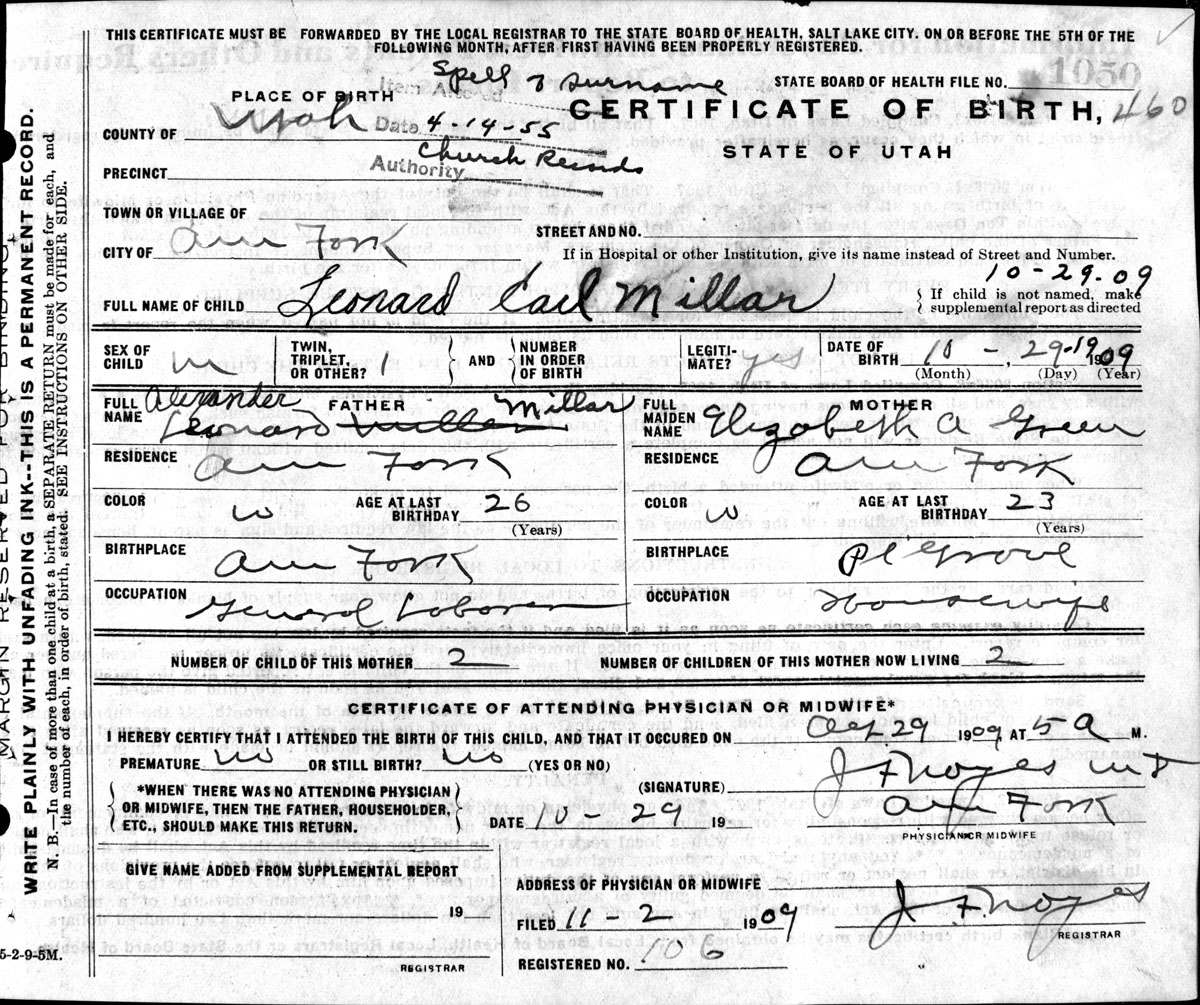 THIS CERTIFICATE MUST BE FORWARDED BY THE LOCAL REGISTRAR TO THE STATE BOARD OF HEALTH, SALT LAKE CITY. ON OR BEFORE THE 5TH OF THE
FOLLOWING MONTH, AFTER FIRST HAVING BEEN PROPERLY REGISTERED.
Spell of Surname
STATE BOARD OF HEALTH FILE NO. 1050
PLACE OF BIRTH
CERTIFICATE OF BIRTH, 460
COUNTY OF Utah
Date 4-14-55
STATE OF UTAH
Authority Church Records
PRECINCT
TOWN OR VILLAGE OF
STREET AND NO.
CITY OF Am Fork
If in Hospital or other Institution, give its name instead of Street and Number.
10-29-09
FULL NAME OF CHILD Leonard Carl Millar
If child is not named, make
supplemental report as directed
SEX OF CHILD M
TWIN, TRIPLET, OR OTHER? 1
AND
NUMBER IN ORDER OF BIRTH
LEGITIMATE? yes
DATE OF BIRTH 10 - , 29-19 1909
(Month) (Day) (Year)
FULL NAME
FATHER
Alexander
Leonard Miller Millar
FULL MAIDEN NAME
MOTHER
Elizabeth A Green
RESIDENCE Am Fork
RESIDENCE Am Fork
COLOR W
AGE AT LAST BIRTHDAY 26
(Years)
COLOR W
AGE AT LAST BIRTHDAY 23
(Years)
BIRTHPLACE Am Fork
BIRTHPLACE Pl Grove
OCCUPATION General Laborer
OCCUPATION Housewife
NUMBER OF CHILD OF THIS MOTHER 2
NUMBER OF CHILDREN OF THIS MOTHER NOW LIVING 2
CERTIFICATE OF ATTENDING PHYSICIAN OR MIDWIFE*
I HEREBY CERTIFY THAT I ATTENDED THE BIRTH OF THIS CHILD, AND THAT IT OCCURED ON Oct 29 1909 AT 5 A M.
PREMATURE No OR STILL BIRTH? No (YES OR NO)
(SIGNATURE) J F Noyes MD
*WHEN THERE WAS NO ATTENDING PHYSICIAN
OR MIDWIFE, THEN THE FATHER, HOUSEHOLDER,
ETC., SHOULD MAKE THIS RETURN.
DATE 10-29 19
Am Fork
PHYSICIAN OR MIDWIFE
GIVE NAME ADDED FROM SUPPLEMENTAL REPORT
19
REGISTRAR
ADDRESS OF PHYSICIAN OR MIDWIFE
FILED 11 2 1909
J. F. Noyes
REGISTRAR
REGISTERED NO. 106
MARGIN RESERVED FOR BINDING
WRITE PLAINLY WITH UNFADING INK--THIS IS A PERMANENT RECORD.
N. B.—In case of more than one child at a birth, a SEPARATE RETURN must be made for each, and
the number of each, in order of birth, stated. SEE INSTRUCTIONS ON OTHER SIDE.
5-2-9-5M.